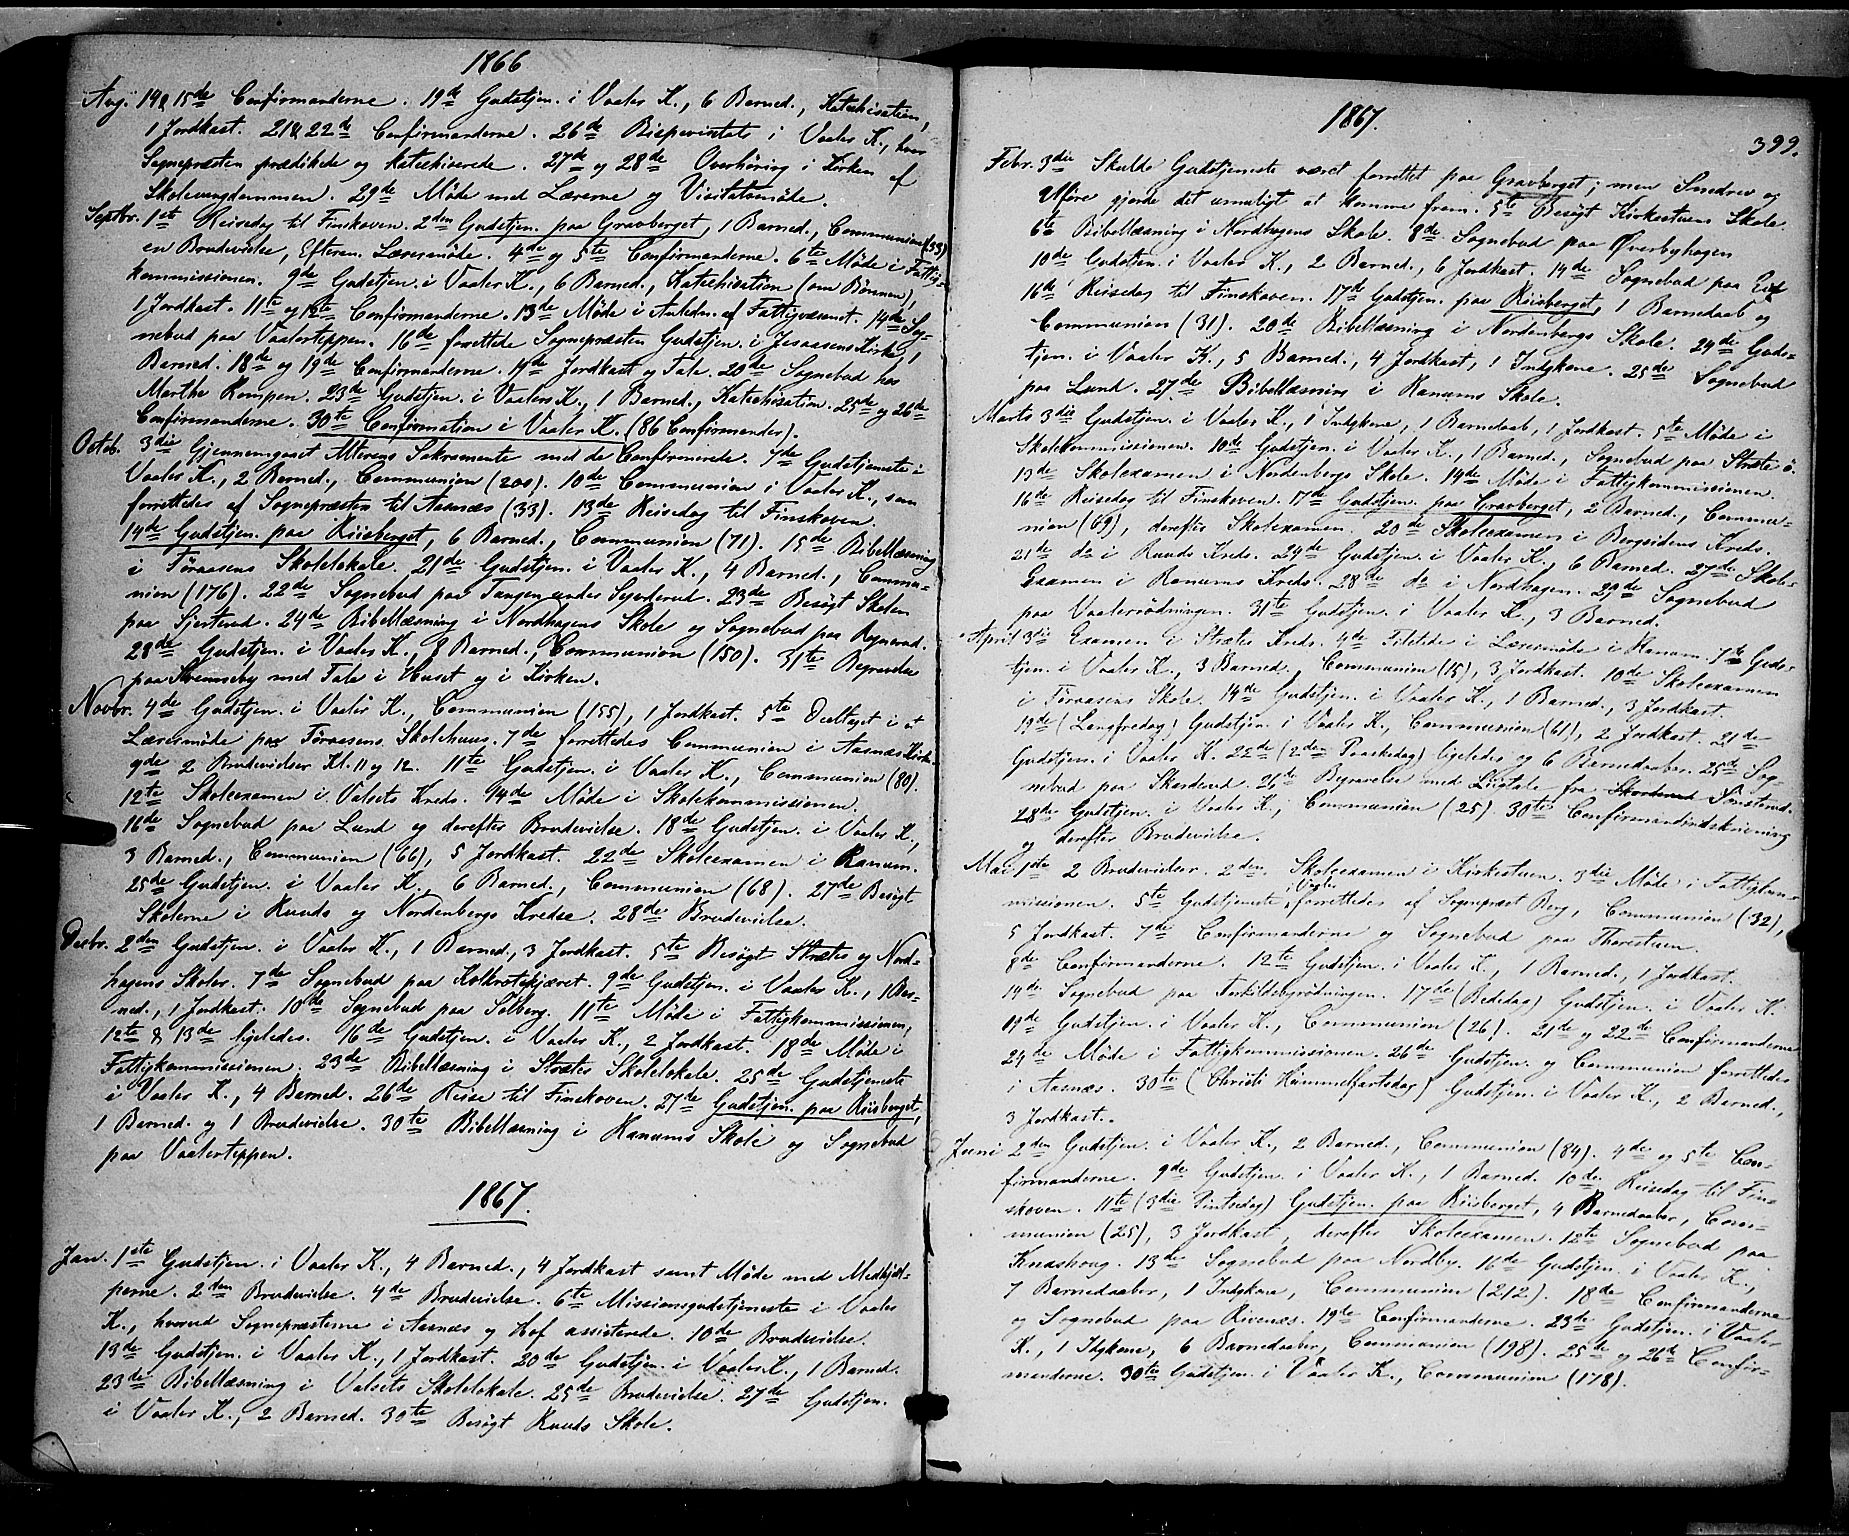 1866
Aug. 14 & 15de Confirmanderne. 19de Gudstjen. i Vaaler K., 6 Barned., Katechisation,
1 Jordkast. 21 & 22de Confirmanderne. 26de Bispevisitats i Vaaler K., hvor
Sognepræsten prædikede og katechiserede. 27de og 28de Overhøring i Kirken af
Skoleungdommen. 29de Møde med Lærerne og Visitatsmøde.
Septbr. 1st Reisedag til Finskoven. 2den Gudstjen. paa Gravberget, 1 Barned., Communion (33)
en Brudevielse, Efterm. Læremøde. 4de og 5te Confirmanderne. 6te Møde i Fattig-
kommissionen. 9de Gudstjen. i Vaaler K., 6 Barned., Katechisation (om Bønnen),
1 Jordkast. 11te og 12te Confirmanderne. 13de Møde i Anledn. af Fattigvæsenet. 14de Sog-
nebud paa Vaalertippen. 16de forrettede Sognepræsten Gudstjen. i Jesaasens Kirke, 1
Barned. 18de og 19de Confirmanderne. 19de Jordkast og Tale. 20de Sognebud hos
Marthe Kompen. 23de Gudstjen. i Vaalers K., 1 Barned., Katechisation. 25de og 26de
Confirmanderne. 30te Confirmation i Vaaler K. (86 Confirmander).
Octob. 3die Gjennemgaaet Alterens Sakramente med de Confirmerede. 7de Gudstjeneste i
Vaaler K., 2 Barned., Communion (200). 10de Communion i Vaaler K., som
forrettedes af Sognepræsten til Aasnæs (33). 13de Reisedag til Finskoven.
14de Gudstjen. paa Riisberget, 6 Barned., Communion (71). 15de Bibellæsning
i Føraasens Skolelokale. 21de Gudstjen. i Vaaler K., 4 Barned., Commu-
nion (176). 22de Sognebud paa Tangen under Sjorderud. 23de Besøgt Skolen
paa Gjesterud. 24de Bibellæsning i Nordhagens Skole og Sognebud paa Rognerud.
28de Gudstjen. i Vaaler K., 8 Barned., Communion (150). 31te Begravelse
paa Svenneby med Tale i Huset og i Kirken.
Novbr. 4de Gudstjen. i Vaaler K., Communion (155), 1 Jordkast. 5te Deeltaget i et
Læremøde paa Føraasens Skolehuus. 7de forrettedes Communion i Aasnæs Kirke
9de 2 Brudevielser Kl. 11 og 12. 11te Gudstjen. i Vaaler K., Communion (80).
12te Skoleexamen i Valsets Kreds. 14de Møde i Skolekommissionen.
16de Sognebud paa Lund og derefter Brudevielse. 18de Gudstjen. i Vaaler K.,
3 Barned., Communion (66), 5 Jordkast. 22de Skoleexamen i Ranum.
25de Gudstjen. i Vaaler K., 6 Barned., Communion (68). 27de Besøgt
Skolerne i Ruuds og Nordenbergs Kredse. 28de Brudevielse.
Decbr. 2den Gudstjen. i Vaaler K., 1 Barned., 3 Jordkast. 5te Besøgt Strætes og Nord-
hagens Skoler. 7de Sognebud paa Kolkrotskjæret. 9de Gudstjen. i Vaaler K., 1 Bar-
ned., 1 Jordkast. 10de Sognebud paa Solberg. 11te Møde i Fattigkommissionen,
12te & 13de ligeledes. 16de Gudstjen. i Vaaler K., 2 Jordkast. 18de Møde i
Fattigkommissionen. 23de Bibellæsning i Strætes Skolelokale. 25de Gudstjeneste
i Vaaler K., 4 Barned. 26de Reise til Finskoven. 27de Gudstjen. paa Riisberget,
1 Barned. og 1 Brudevielse. 30te Bibellæsning i Ranums Skole og Sognebud
paa Vaalertippen.
1867.
Jan. 1ste Gudstjen. i Vaaler K., 4 Barned., 4 Jordkast samt Møde med Medhjæl-
perne. 2den Brudevielse. 4de Brudevielse. 6te Missionsgudstjeneste i Vaaler
K., hvorved Sognepræsterne i Aasnæs og Hof assisterede. 10de Brudevielse.
13de Gudstjen. i Vaaler K., 1 Jordkast. 20de Gudstjen. i Vaaler K., 1 Barned.
23de Bibellæsning i Valsets Skolelokale. 25de Brudevielse. 27de Gudstjen.
i Vaaler K., 2 Barned. 30te Besøgt Ruuds Skole.
1867.
399.
Febr. 3die Skulde Gudstjeneste været forrettet paa Gravberget; men Snedrev og
Uføre gjorde det umuligt at komme frem. 5te Besøgt Kirkestuens Skole.
6te Bibellæsning i Nordhagens Skole. 8de Sognebud paa Øverbyhagen
10de Gudstjen. i Vaaler K., 2 Barned., 6 Jordkast. 14de Sognebud paa
16de Reisedag til Finskoven. 17de Gudstjen. paa Riisberget, 1 Barnedaab og
Communion (31). 20de Bibellæsning i Nordenbergs Skole. 24de Guds-
tjen. i Vaaler K., 5 Barned., 4 Jordkast, 1 Indgkone. 25de Sognebud
paa Lund. 27de Bibellæsning i Ranums Skole.
Marts 3die Gudstjen. i Vaaler K., 1 Indgkone, 1 Barnedaab, 1 Jordkast. 5te Møde i
Skolekommissionen. 10de Gudstjen. i Vaaler K., 1 Barned., Sognebud paa Stræte ö.
13de Skoleexamen i Nordenbergs Skole. 14de Møde i Fattigkommissionen.
16de Reisedag til Finskoven. 17de Gudstjen. paa Gravberget, 2 Barned., Commu-
nion (69), derefter Skoleexamen. 20de Skoleexamen i Bergsidens Kreds.
21de do i Ruuds Kreds. 24de Gudstjen. i Vaaler K., 6 Barned. 27de Skole-
Examen i Ranums Kreds. 28de do i Nordhagen. 29de Sognebud
paa Vaalerrödningen. 31te Gudstjen. i Vaaler K., 3 Barned.
April 3die Examen i Strætes Kreds. 4de Tilstede i Læremøde i Ranum. 7de Guds-
tjen. i Vaaler K., 3 Barned., Communion (15), 3 Jordkast. 10de Skoleexamen
i Føraasens Skole. 14de Gudstjen. i Vaaler K., 1 Barned., 3 Jordkast.
19de (Langfredag) Gudstjen. i Vaaler K., Communion (61), 2 Jordkast. 21de
Gudstjen. i Vaaler K. 22de (2den Paaskedag) ligeledes og 6 Barnedaaber. 25de Sog-
nebud paa Skarderud. 26de Begravelse med Liigtale fra Skarderud Sonsterud.
28de Gudstjen. i Vaaler K., Communion (25). 30te Confirmandindskrivning
og derefter Brudevielse.
Mai 1ste 2 Brudevielser. 2den Skoleexamen i Kirkestuen. 3die Møde i Fattigkom-
missionen. 5te Gudstjeneste i Vaaler forrettedes af Sognepræst Berg, Communion (32),
5 Jordkast. 7de Confirmanderne og Sognebud paa Thorestuen.
8de Confirmanderne. 12te Gudstjen. i Vaaler K., 1 Barned., 1 Jordkast.
14de Sognebud paa Torkildsbyrødningen. 17de (Bededag) Gudstjen. i Vaaler K.
19de Gudstjen. i Vaaler K., Communion (26). 21de og 22de Confirmanderne
24de Møde i Fattigkommissionen. 26de Gudstjen. og Communion forrettedes
i Aasnæs. 30te (Christi Himmelfartsdag) Gudstjen. i Vaaler K., 2 Barned.,
3 Jordkast.
Juni 2den Gudstjen. i Vaaler K., 2 Barned., Communion (84). 4de og 5te Con-
firmanderne. 9de Gudstjen. i Vaaler K., 1 Barned. 10de Reisedag til Fin-
skoven. 11te (3die Pintsedag) Gudstjen. paa Riisberget, 4 Barnedaaber, Com-
munion (25), 3 Jordkast, derefter Skoleexamen. 12te Sognebud paa
Knashoug. 13de Sognebud paa Nordby. 16de Gudstjen. i Vaaler K.,
7 Barnedaaber, 1 Indgkone, Communion (212). 18de Confirmanderne
og Sognebud paa Rivenæs. 19de Confirmanderne. 23de Gudstjen. i Vaaler
K., 1 Idgkone, 6 Barnedaaber, Communion (198). 25de og 26de Confir-
manderne. 30te Gudstjen. i Vaaler K., Communion (178).